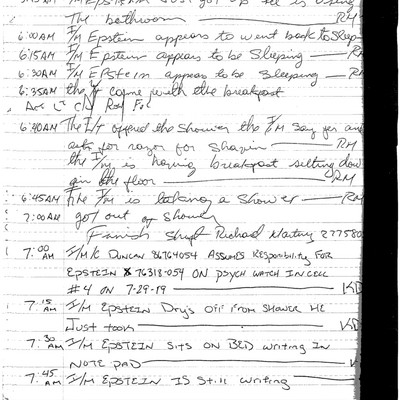 just got up he is using
The bathroom — RM
6:00AM I/M Epstein appears to went back to sleep
6:15AM I/M Epstein appears to be sleeping — RM
6:30AM I/M Epstein appears to be sleeping — RM
6:35AM the come with the breakfast
6:40AM The offered the shower the I/M say yes and
for razor for
the I/M is having breakfast sitting down
in the floor — RM
6:45AM The I/M is taking a shower — RM
7:00AM got out of shower
Finish shift Richard
7:00 AM I/M K. DUNCAN 86764054 ASSUMES RESPONSIBILITY FOR
EPSTEIN 76318-054 ON PSYCH WATCH IN CELL
#4 ON 7-29-19 — KD
7:15 AM I/M EPSTEIN Drys OFF FROM SHOWER HE
JUST took — KD
7:30 AM I/M EPSTEIN SITS ON BED WRITING IN
NOTE PAD — K
7:45 AM I/M EPSTEIN IS Still writing —